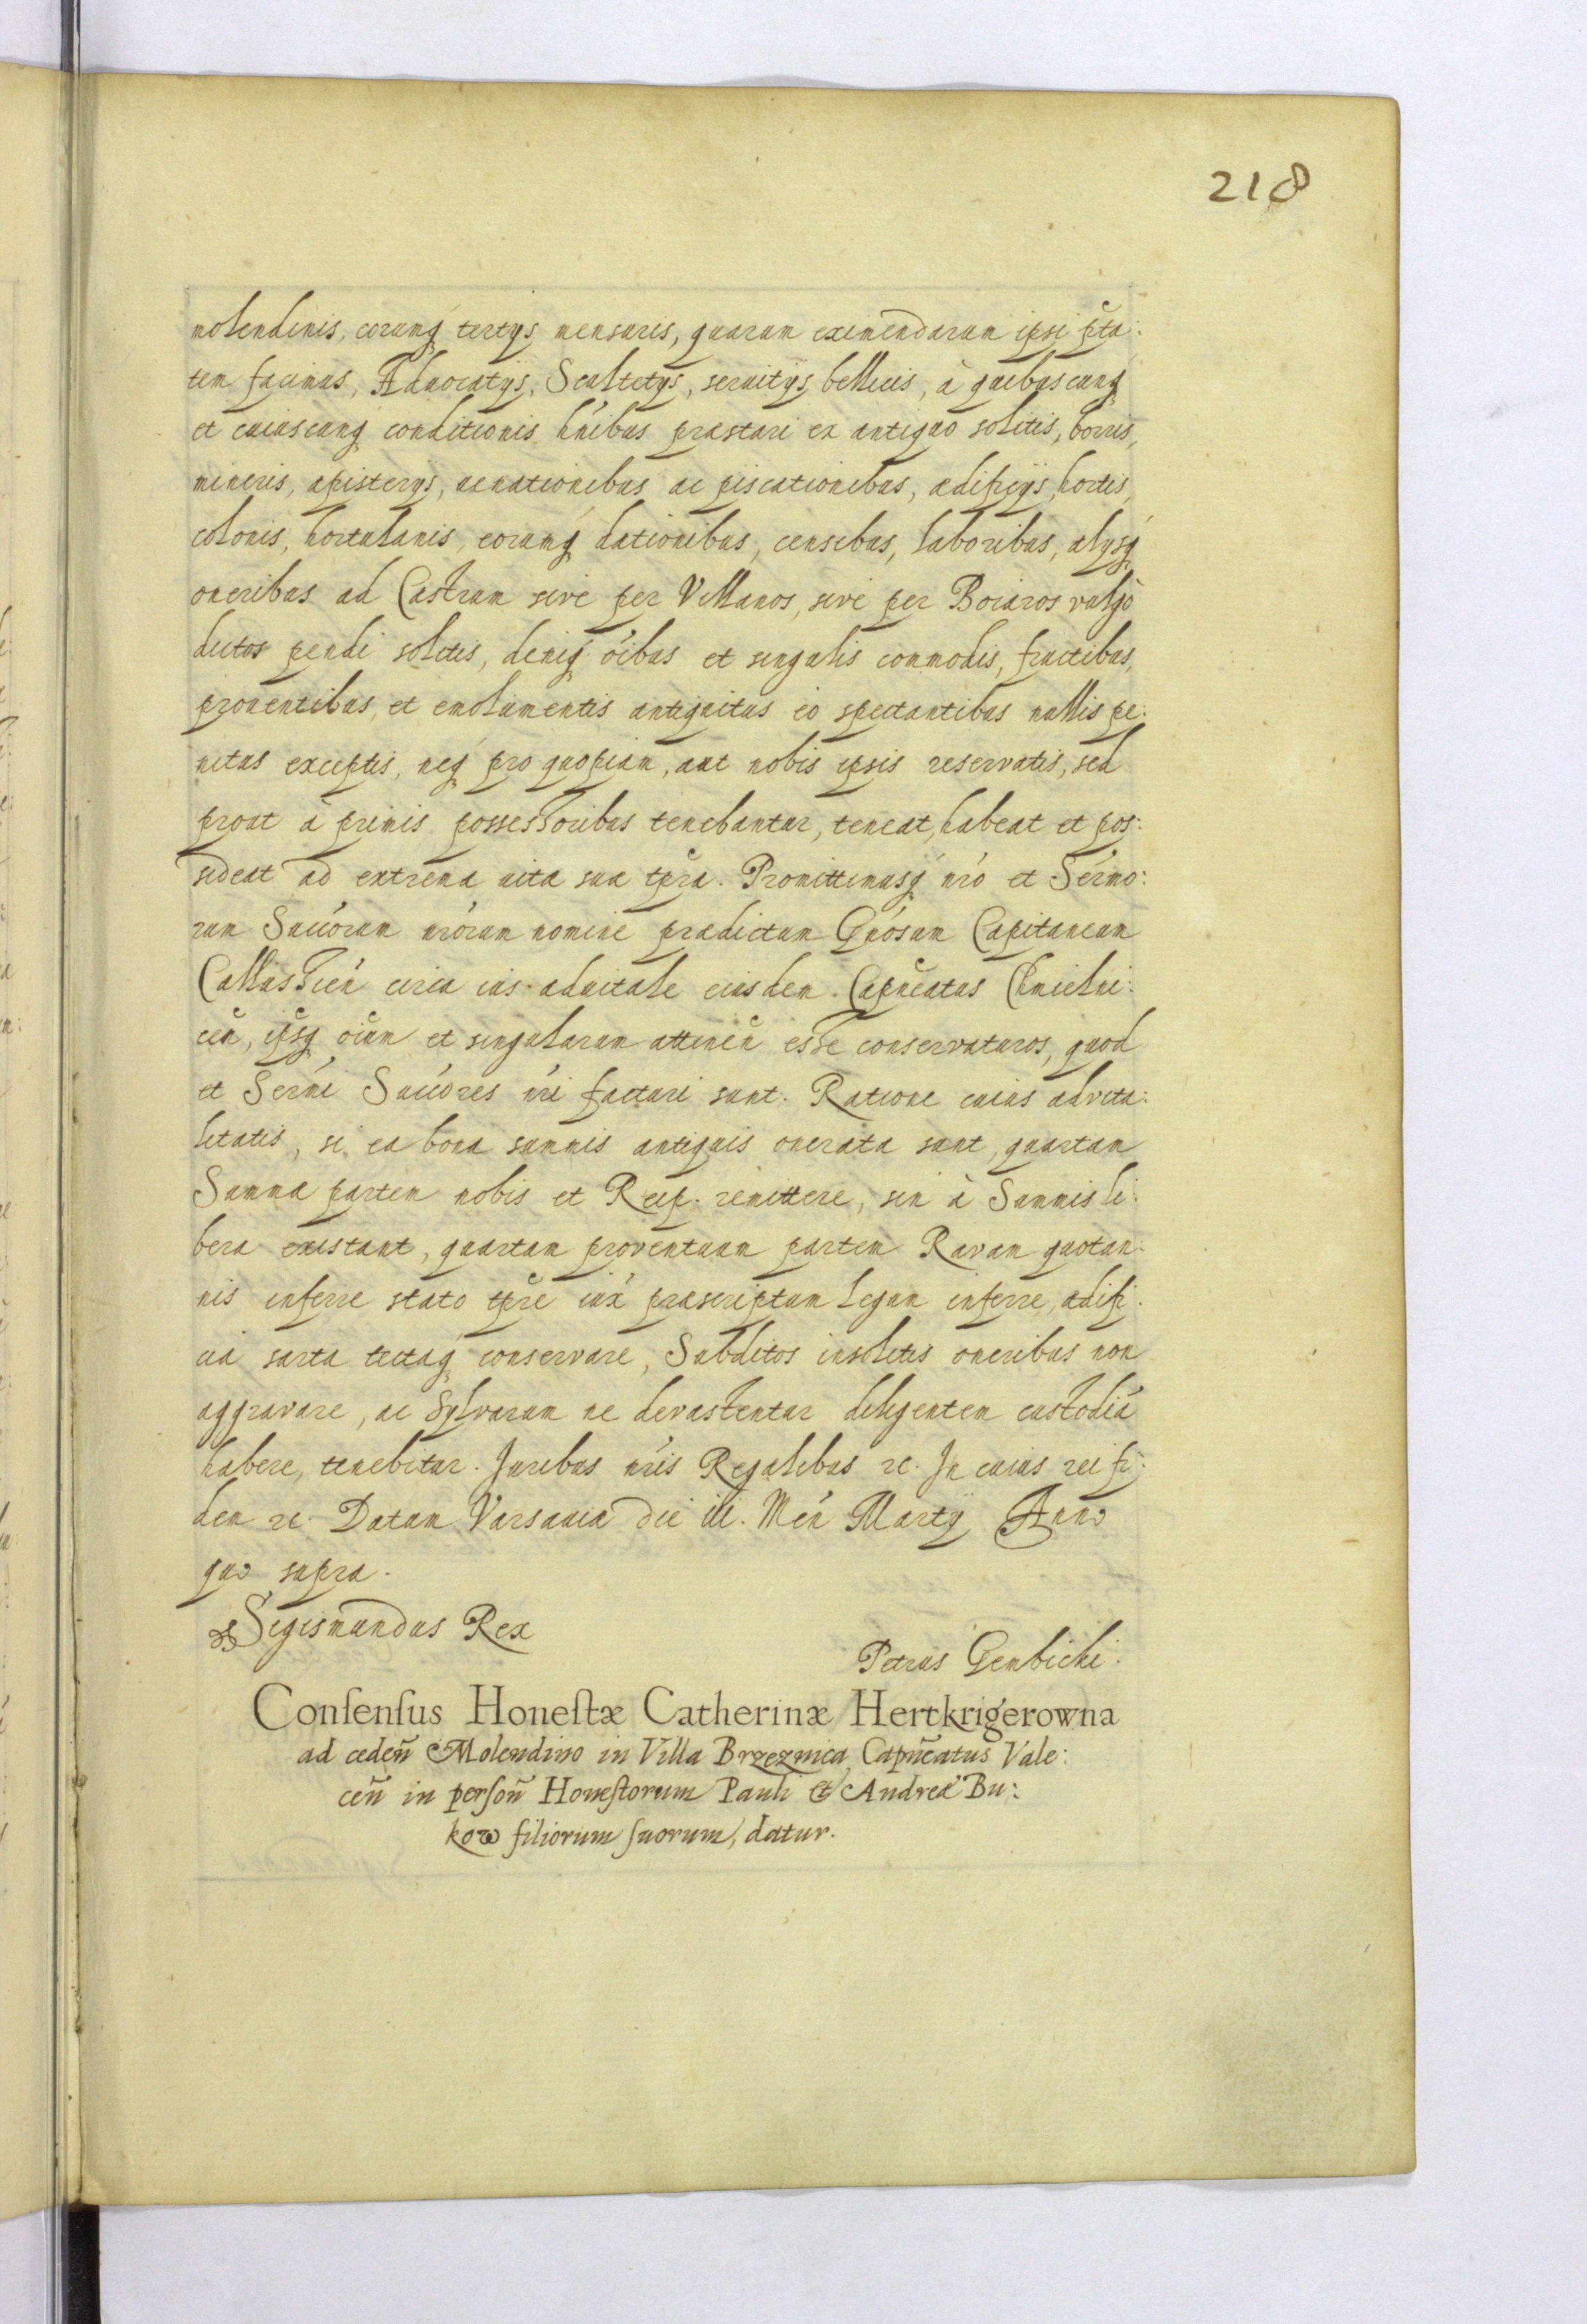 218
molendinis, eorumq́ tertijs mensuris, quarum eximendarum ipsi p̃ta:
tem facimus, Aduocatijs, Scultetijs, seruitijs bellicis, à quibuscunq́
et cuiuscunq́ conditionis hńibus præstari ex antiquo solitis, borris,
mineris, apisterijs, uenationibus ac piscationibus, ædificijs, hortis,
colonis, hortulanis, eorumq́ dationibus, censibus, laboribus, alijsq́
oneribus ad Castrum sive per Villanos, sive per Boiaros vulgò
dictos pendi solitis, deniq́ óibus et singulis commodis, fructibus,
prouentibus, et emolumentis antiquitus eo spectantibus nullis pe:
nitus exceptis, neq́ pro quopiam, aut nobis ipsis reservatis, sed
prout à primis possessoribus tenebantur, teneat, habeat et pos:
sideat ad extrema uitæ suæ tp̃ra. Promittimusq́ nŕo et Sérmo:
rum Succórum nrórum nomine prædictum Gnósum Capitaneum
Callussień circa ius aduitale eiusdem Capn̄eatus Chmielni:
ceń, ip̃sq́ oiũm et singularum attineñ esse conservaturos, quod
et Sérmi Succóres nŕi facturi sunt. Ratione cuius advita:
litatis, si ea bona summis antiquis onerata sunt, quartam
Summæ partem nobis et Reip. remittere, sin à Summis li:
bera existant, quartam proventuum partem Ravam quotan:
nis inferre stato tp̃re iux́ præscriptum legum inferre, ædifi:
cia sarta tectaq́ conservare, Subditos insolitis oneribus non
aggravare, ac Sylvarum ne devastentur diligentem custodiá
habere, tenebitur. Juribus nŕis Regalibus ꝛc. In cuius rei fi:
dem ꝛc. Datum Varsauiæ die iii. Meń Martij Anno
quo supra.
Sigismundus Rex
Petrus Gembicki.
Consensus Honestæ Catherinæ Hertkrigerowna
ad cedeñ Molendino in Villa Brzeznica, Capñeatus Vale:
ceñ in persoñ Honestorum Pauli & Andreæ Bu:
kow filiorum suorum, datur.